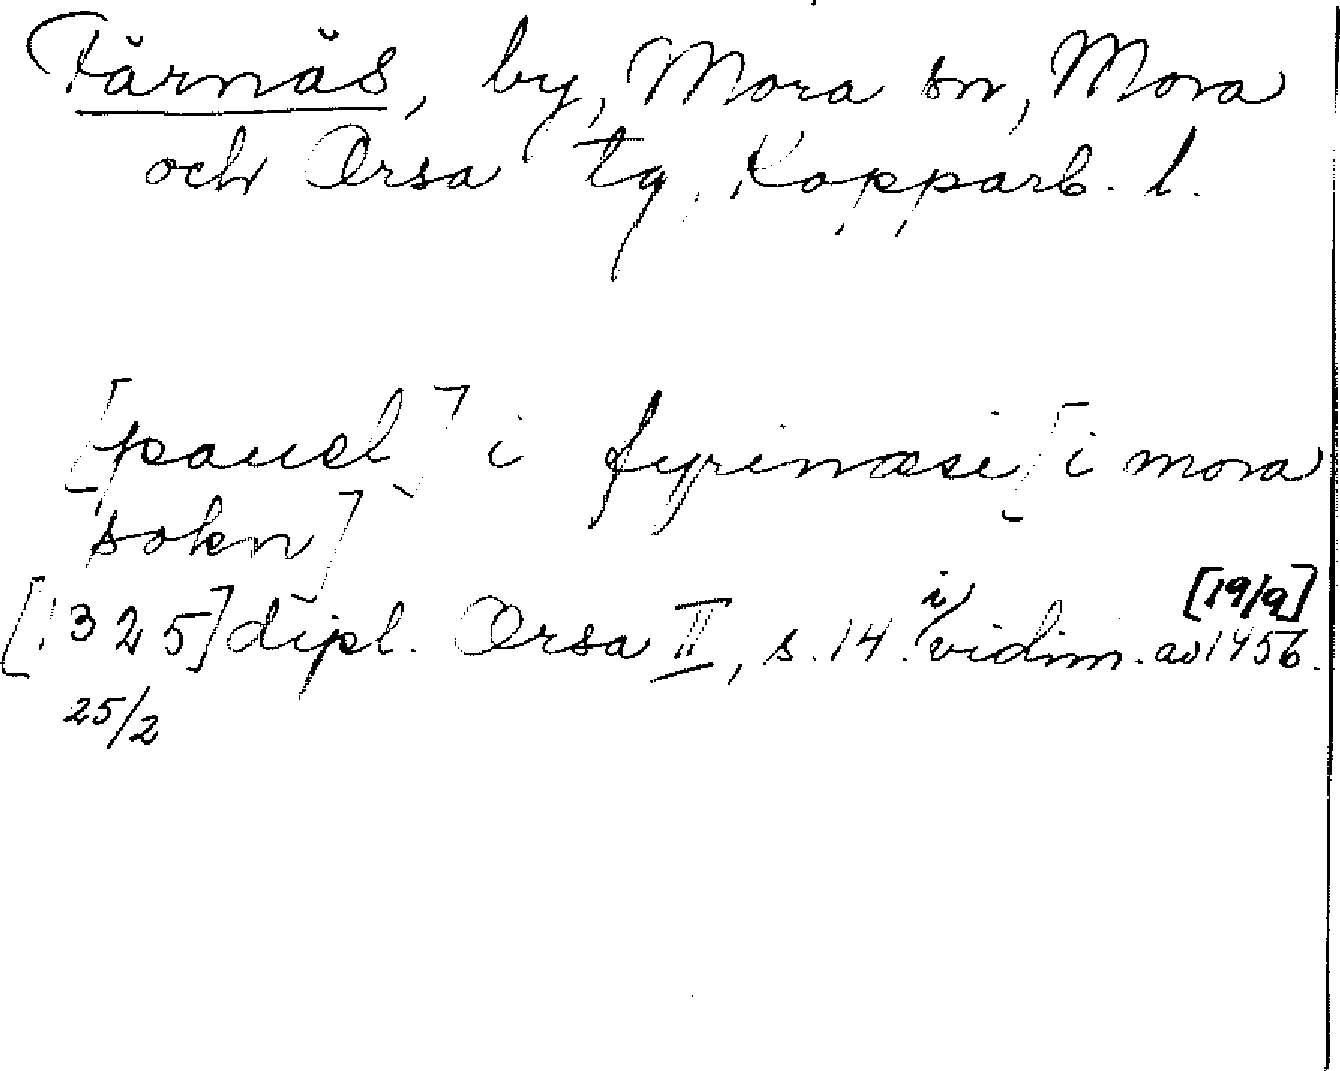 Färnäs, by, Mora sn, Mora
och Orsa tg, Kopparb. l.
[pauel] i fyrinæsi [i mora
sokn]
[1325] dipl. Orsa II, s. 14. i vidim. av 1456. [19/9]
25/2